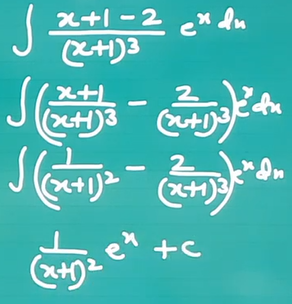 ∫ (x+1-2)/(x+1)³ eˣ dx
∫ ((x+1)/(x+1)³ - 2/(x+1)³) eˣ dx
∫ (1/(x+1)² - 2/(x+1)³) eˣ dx
1/(x+1)² eˣ + c